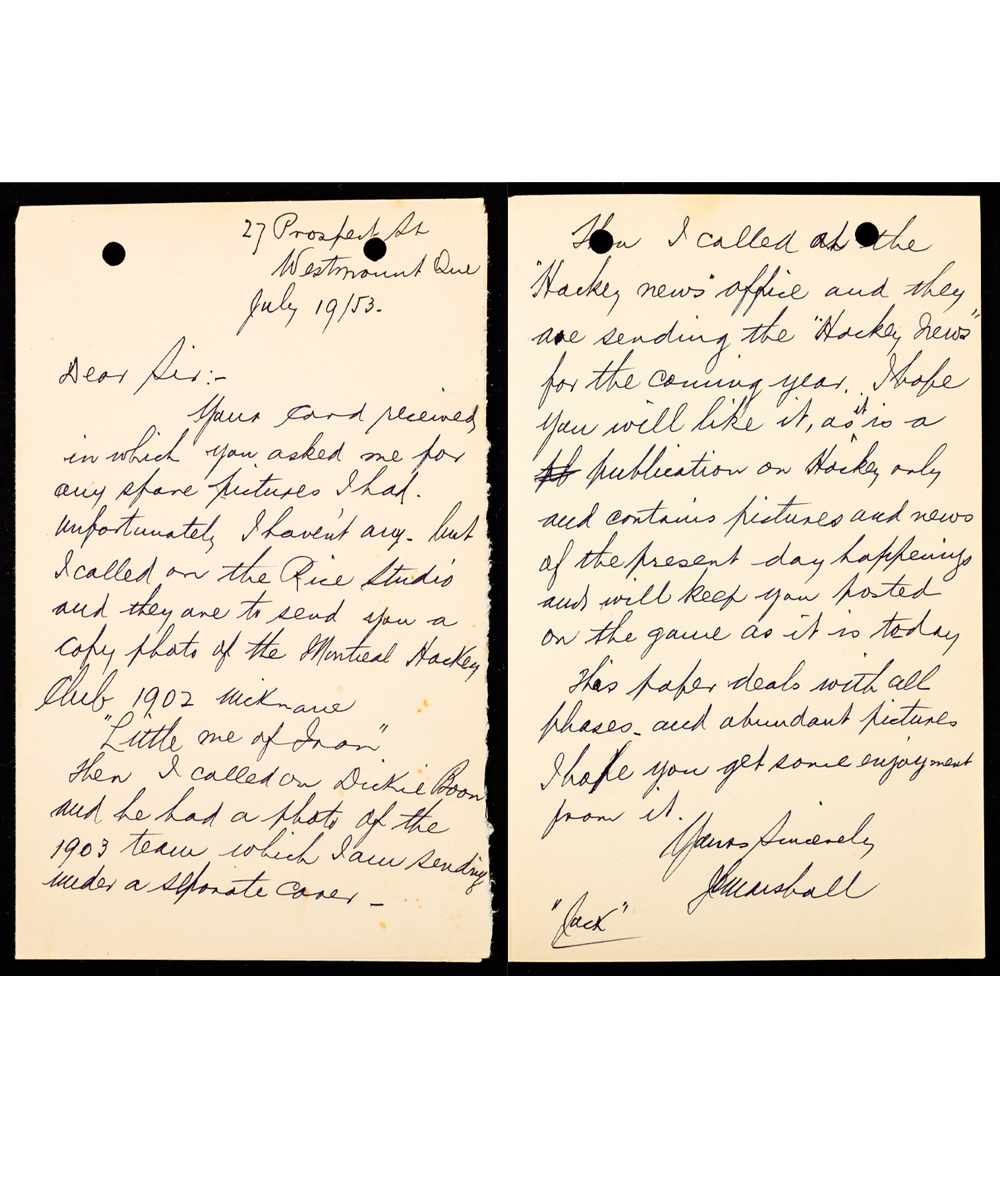 27 Prospect St
Westmount Que
July 19/53.
Dear Sir:-
Your card received
in which you asked me for
any spare pictures I had.
Unfortunately I haven't any - but
I called on the Rice Studio
and they are to send you a
copy photo of the Montreal Hockey
Club 1902 nickname
"Little me of Iron"
Then I called on Dickie Boon
and he had a photo of the
1903 team which I am sending
under a separate cover -
Then I called at the
"Hockey news" office and they
are sending the "Hockey News"
for the coming year. I hope
you will like it, as it is a
publication on Hockey only
and contains pictures and news
of the present day happenings
and will keep you posted
on the game as it is today
This paper deals with all
phases - and abundant pictures
I hope you get some enjoyment
from it.
Yours Sincerely
JCMarshall
"Jack"